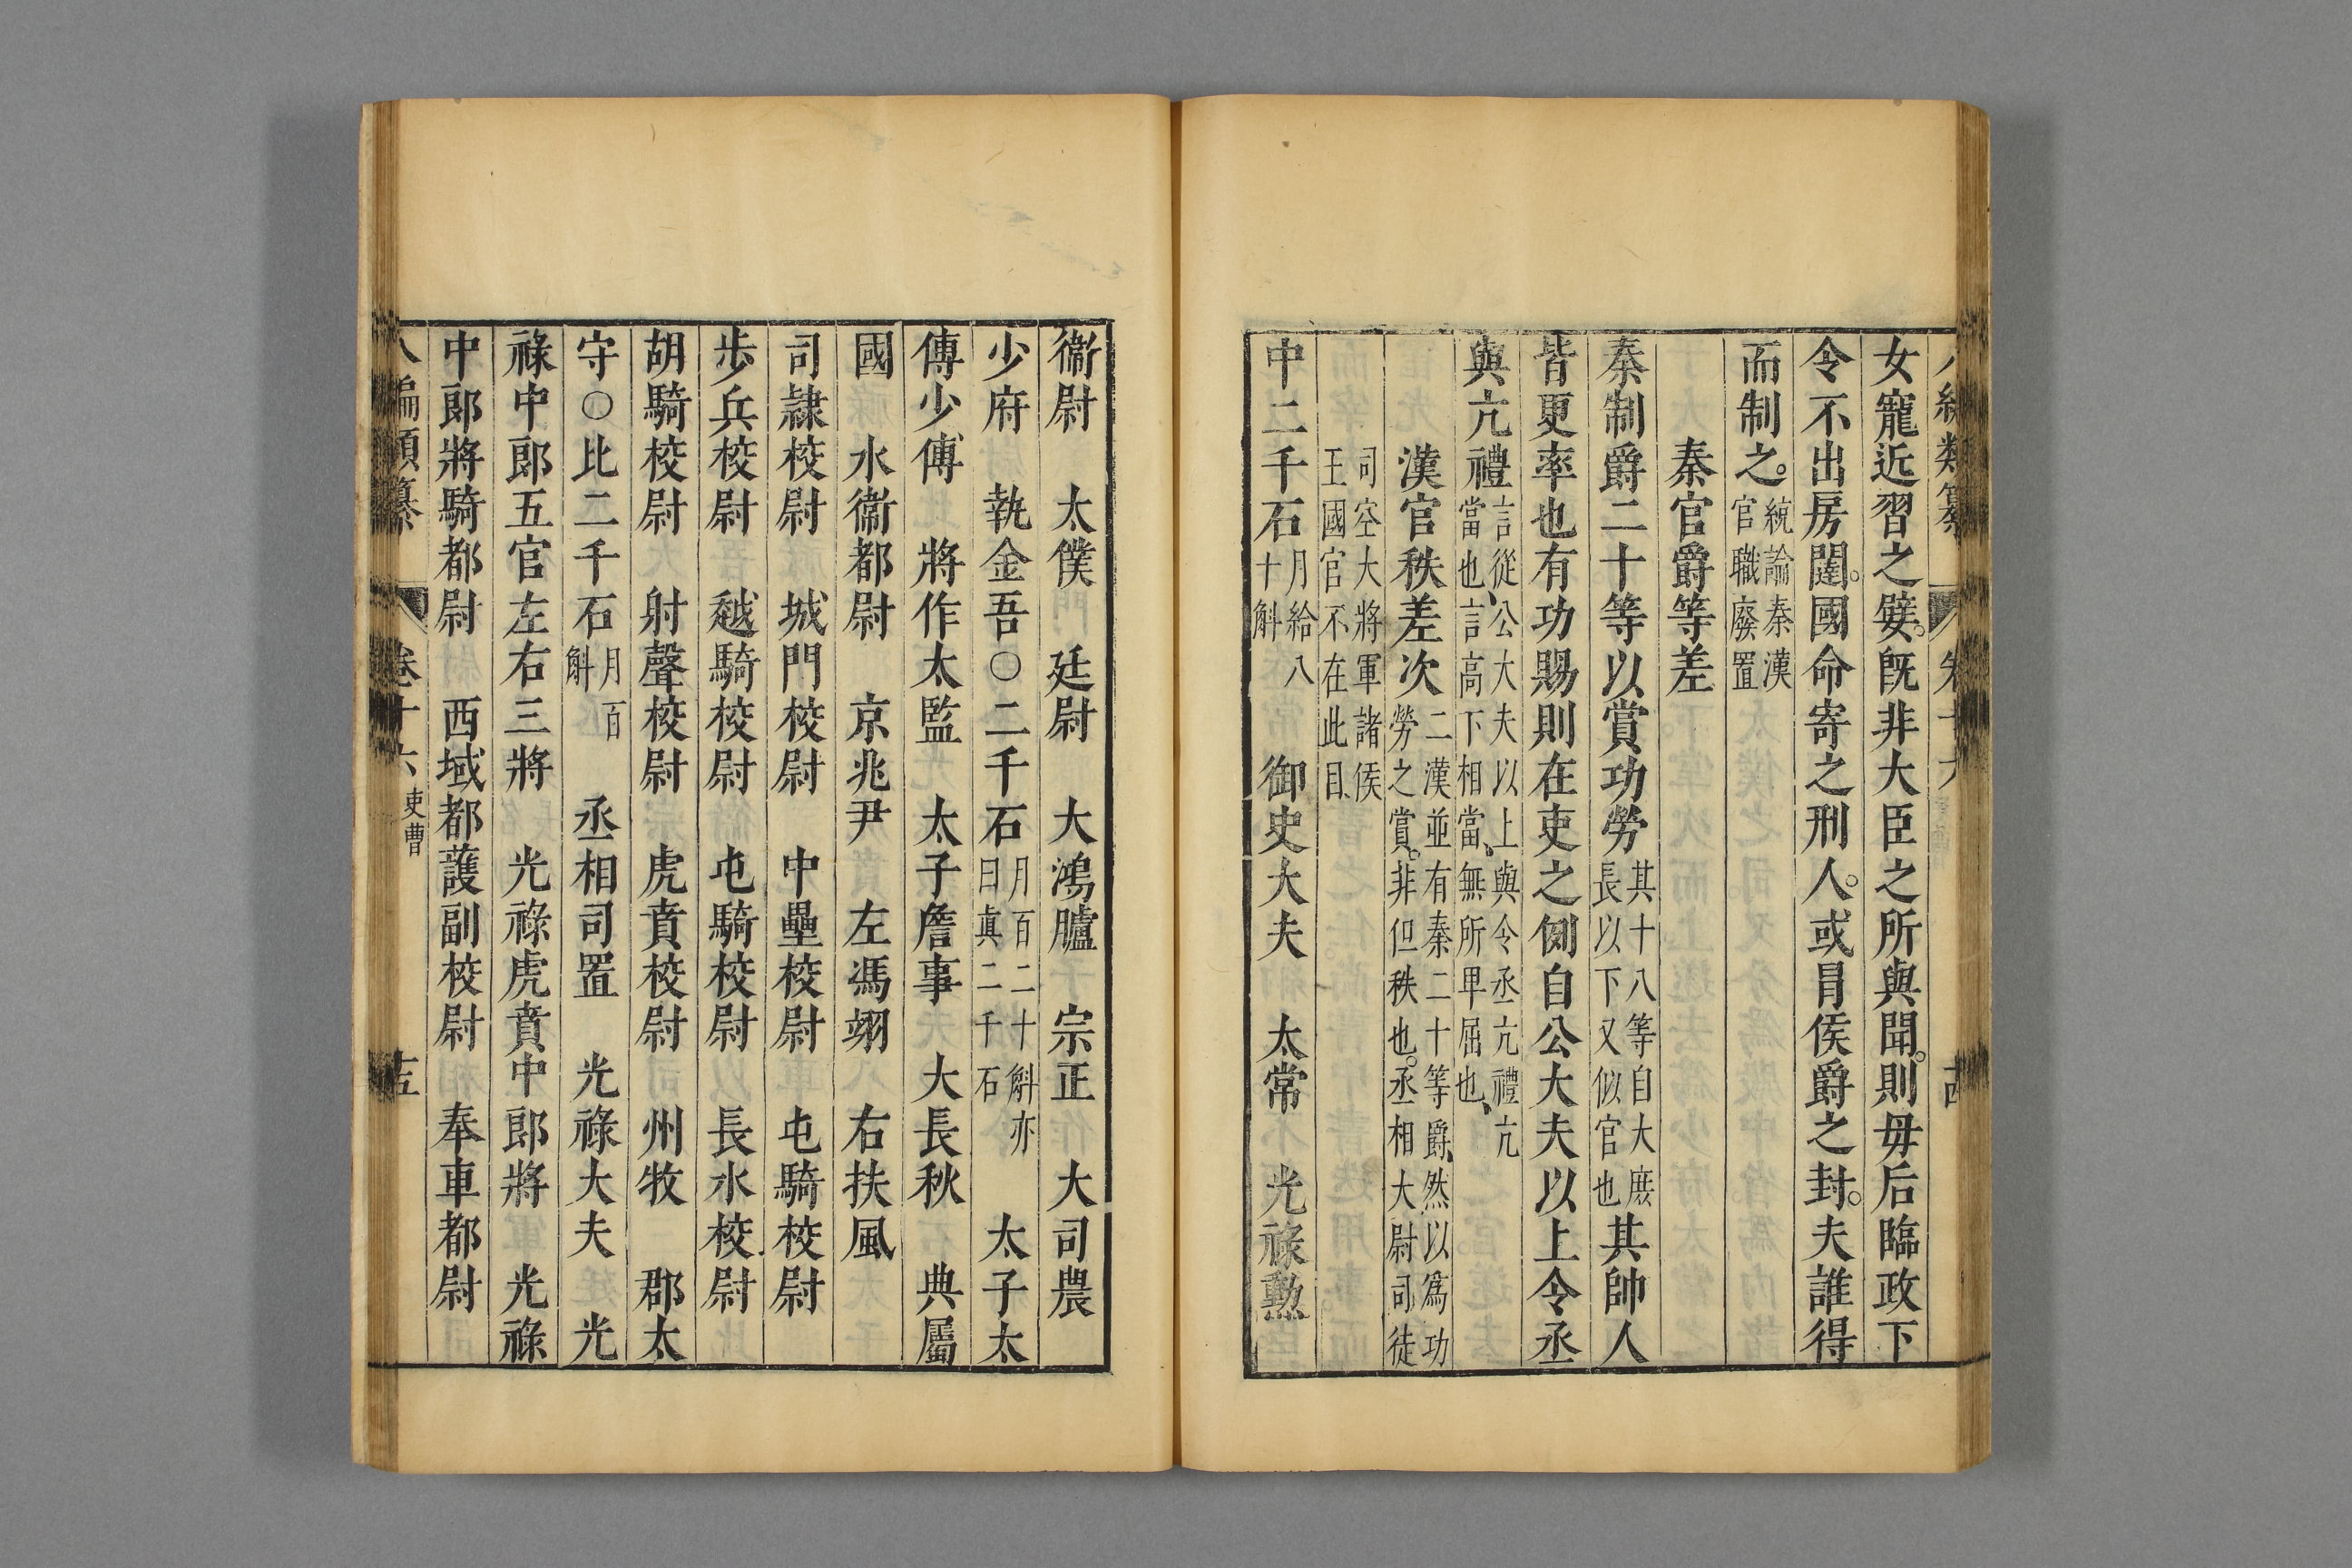 女寵近習之嬖。旣非大臣之所與聞。則毋后臨政下
令不出房闥。國命寄之刑人。或冒侯爵之封。夫誰得
而制之。統論秦漢官職廢置
秦官爵等差
秦制爵二十等以賞功勞其十八等自大庶長以下又似官也其帥人
皆更率也有功賜則在吏之側自公大夫以上令丞
與亢禮言從公大夫以上與令丞亢禮亢當也、言高下相當、無所𤰞屈也、
漢官秩差次二漢並有秦二十等爵、然以爲功勞之賞。非但秩也。丞相大尉司徒
司空大將軍諸侯王國官不在此目、
中二千石月給八十斛 御史大夫 太常 光祿勲
衞尉 太僕 廷尉 大鴻臚 宗正 大司農
少府 執金吾○二千石月百二十斛亦曰眞二千石 太子太
傅少傅 將作太監 太子詹事 大長秋 典屬
國 水衞都尉 京兆尹 左馮翊 右扶風
司隸校尉 城門校尉 中壘校尉 屯騎校尉
步兵校尉 越騎校尉 屯騎校尉 長水校尉
胡騎校尉 射聲校尉 虎賁校尉 州牧 郡太
守○比二千石月百斛 丞相司置 光祿大夫 光
祿中郎五官左右三將 光祿虎賁中郎將 光祿
中郎將騎都尉 西域都護副校尉 奉車都尉
編類纂 卷十六 吏曹 十五